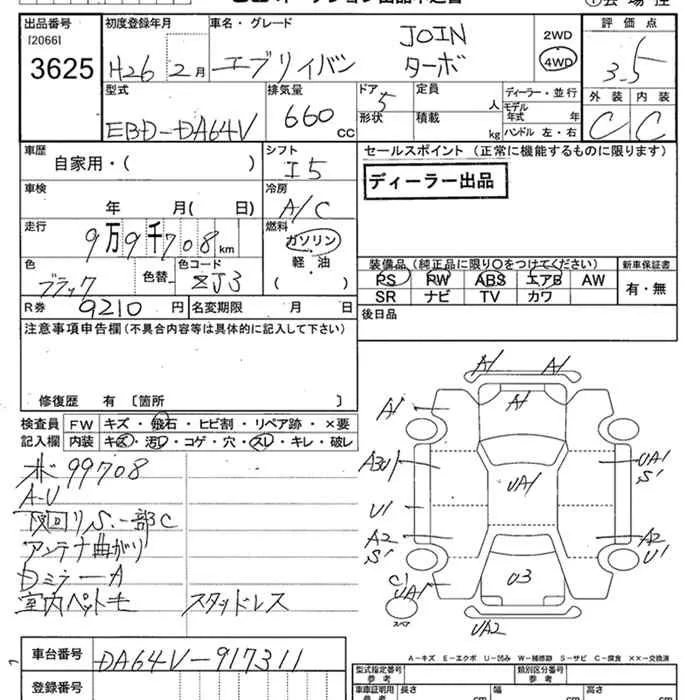 出品番号
[2066]
3625
初度登録年月
H26 2月
車名・グレード
エブリイバン
JOIN
ターボ
2WD
4WD
評価点
3.5
外装 内装
C C
型式
EBD-DA64V
排気量
660 CC
ドア
5
形状
定員
人
積載
kg
ディーラー・並行
モデル年式 年
ハンドル 左・右
車歴
自家用・( )
シフト
I5
セールスポイント (正常に機能するものに限ります)
ディーラー出品
車検
年 月( 日)
冷房
A/C
走行
9万9千708km
燃料
ガソリン
軽・油
( )
色
ブラック
色替
色コード
ZJ3
R券 9210円
名変期限 月 日
装備品 (純正品に限り○をつけてください)
PS PW ABS エアB AW
SR ナビ TV カワ
新車保証書
有・無
後日品
注意事項申告欄 (不具合内容等は具体的に記入して下さい)
修復歴 有 〔箇所 〕
検査員
記入欄
FW キズ・飛石・ヒビ割・リペア跡・×要
内装 キズ・汚レ・コゲ・穴・スレ・キレ・破レ
99708
A-U
下回りS.一部C
アンテナ曲がり
Dミラ一A
室内ペット毛 スタッドレス
A1 A1
A1
A1
A3U1
UA1
S1
UA1
U1
A2
S1
A2
U1
C1
UA1
U3
スペア
UA2
A-キズ E-エクボ U-凹み W-補修跡 S-サビ C-腐食 ××-交換済
車台番号
DA64V-917311
登録番号
型式指定番号
参考
類別区分番号
参考
車庫証明用
参考
長さ cm
幅 cm
高さ cm